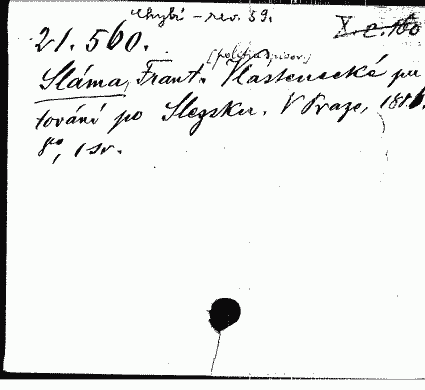 Chybí - rev. 59.
X. c. 160
21. 560.
[politik a spisov.]
Sláma, Frant. Vlastenecké pu
tování po Slezsku. V Praze, 1886.
8°, 1 sv.